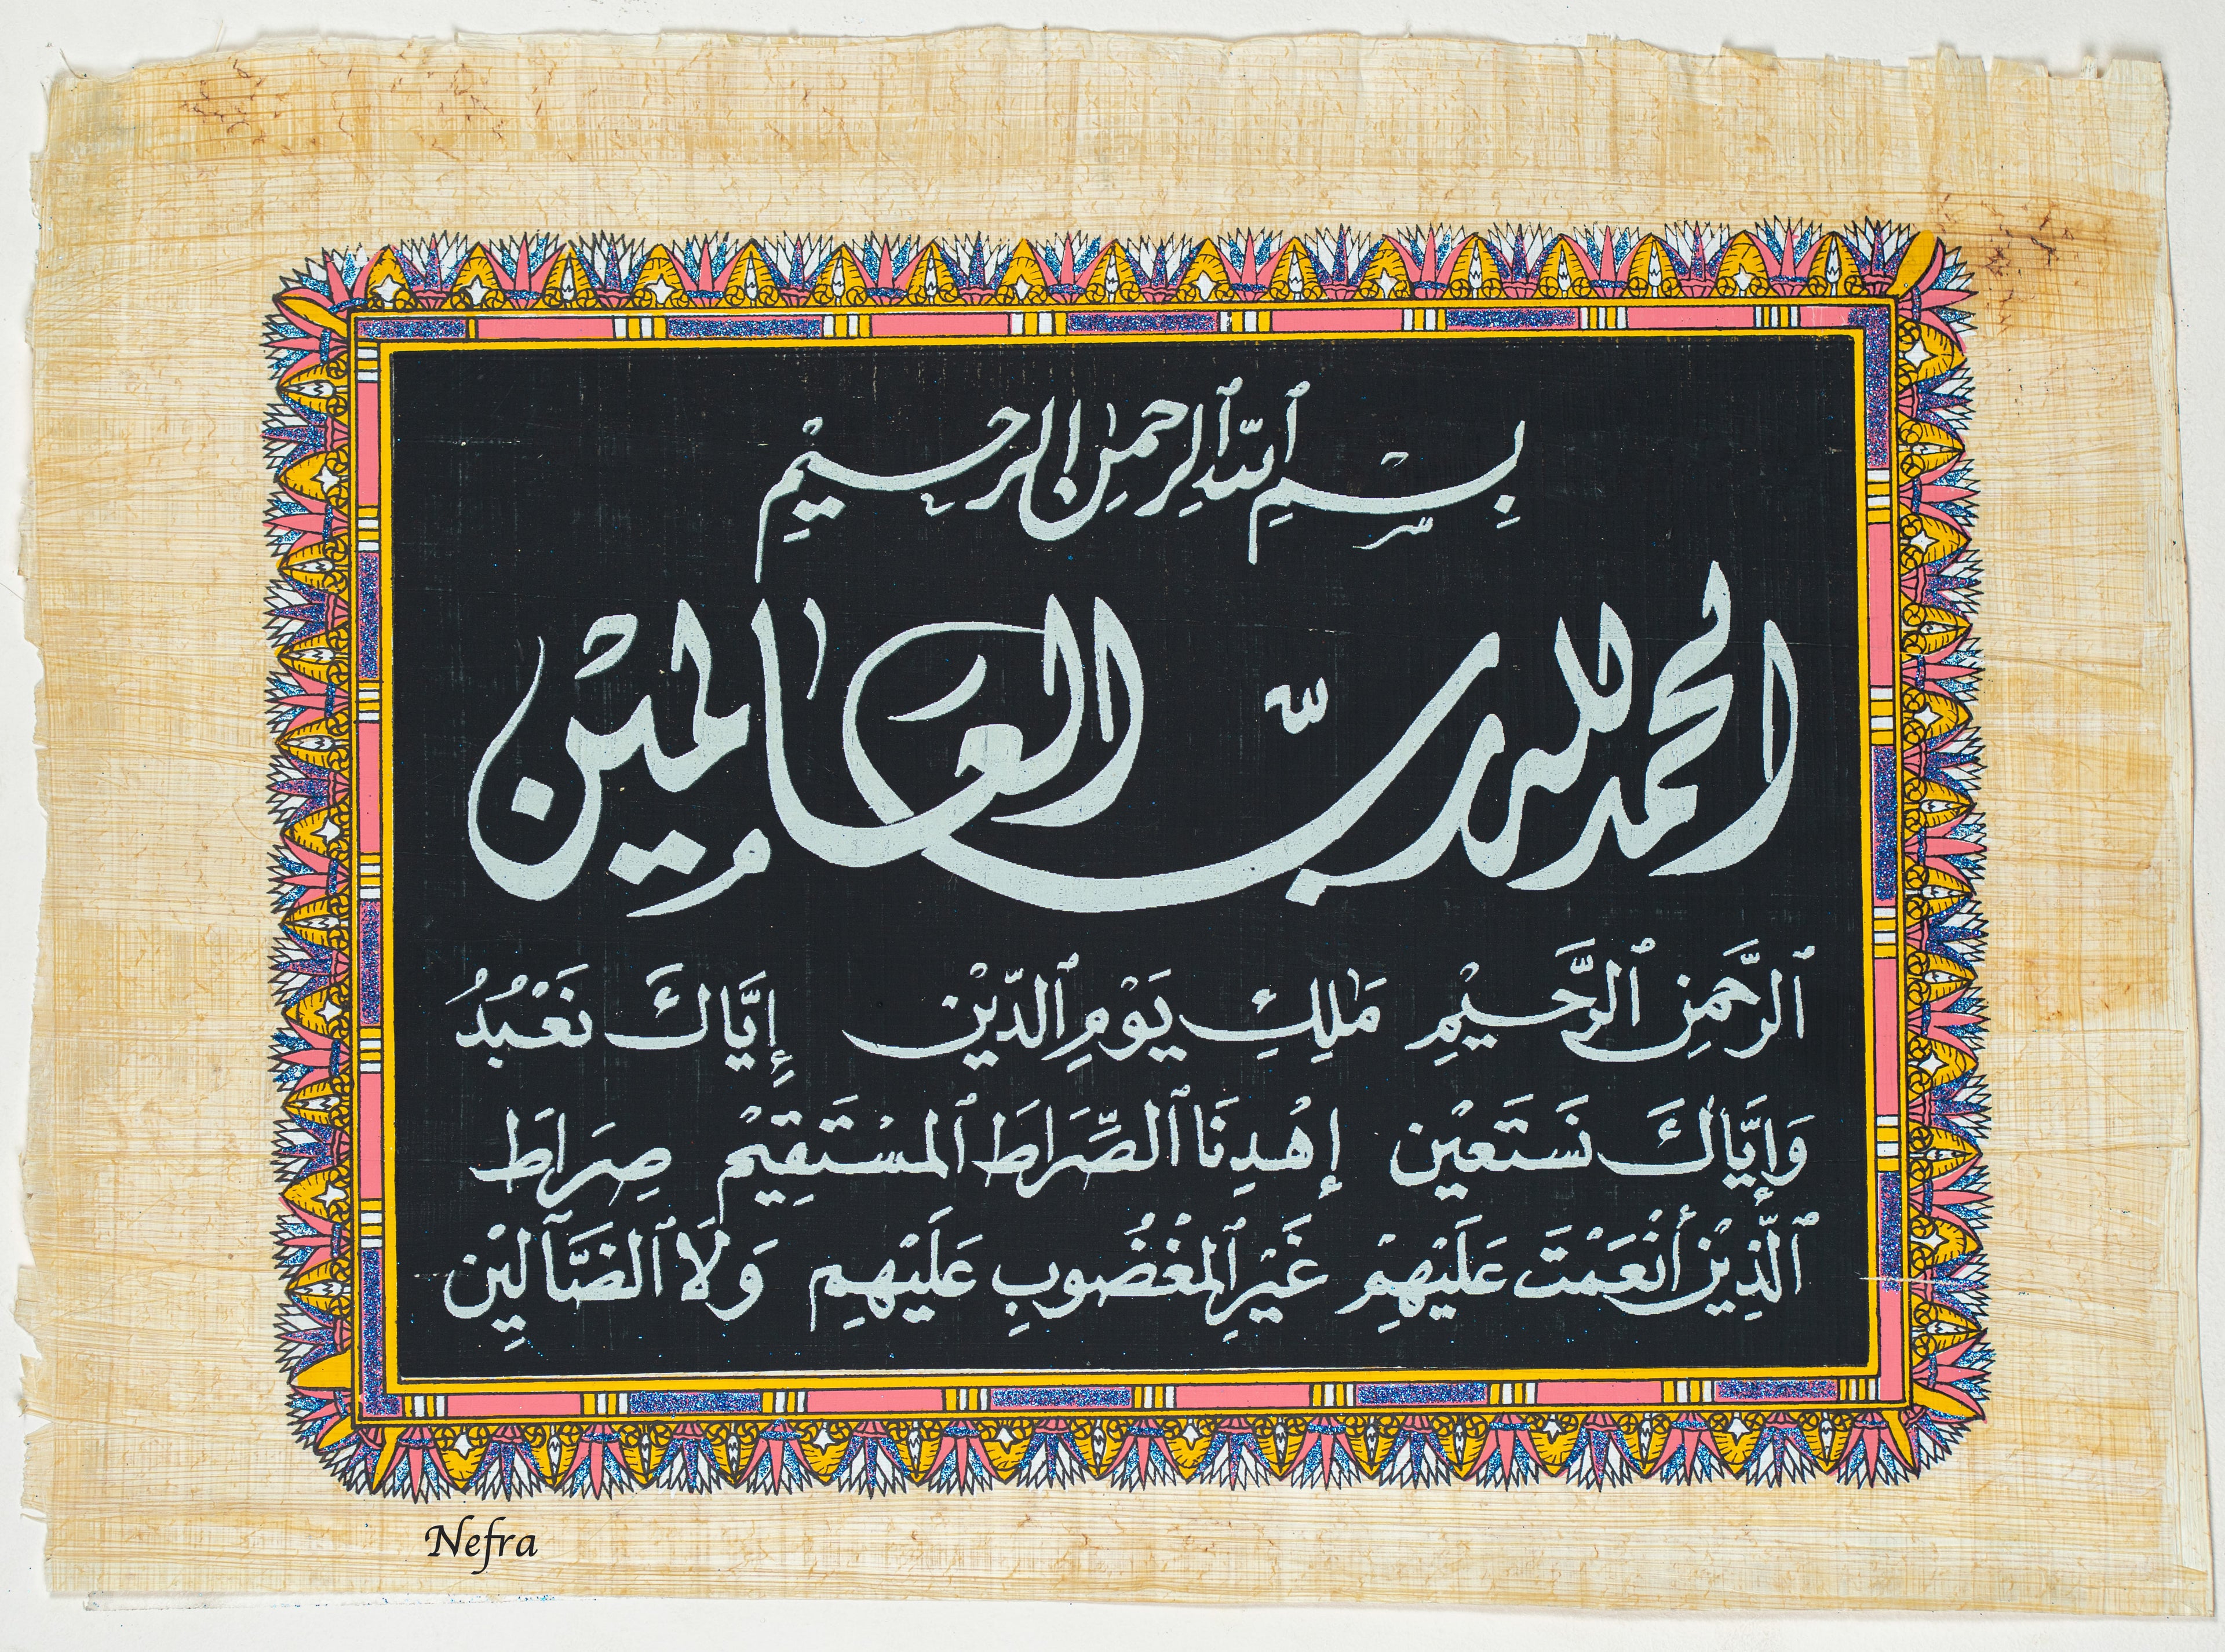 بِسْمِ ٱللّٰهِ ٱلرحمٰنِ الرحيْمِ
الحمد لله ربّ العالميْن
ٱلرَّحمٰنِ ٱلرَّحيْمِ مَٰلِكِ يَوْمِ ٱلدّيْن إِيَّاكَ نَعْبُدُ
وَإِيَّاكَ نَسْتَعيْن إِهْدِنَا ٱلصِّرَاطَ ٱلمسْتَقِيْم صِرَاطَ
ٱلّذِيْنَ أَنْعَمْتَ عَلَيْهِمْ غَيْرِ ٱلمغْضُوبِ عَلَيْهِم وَلَا ٱلضَّآلِيْن
Nefra